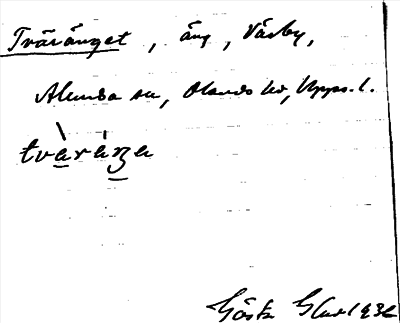 Tväränget, äng, Väsby,
Alunda sn, Olands hd, Upps. l.
tvàráŋa
Gösta 1932